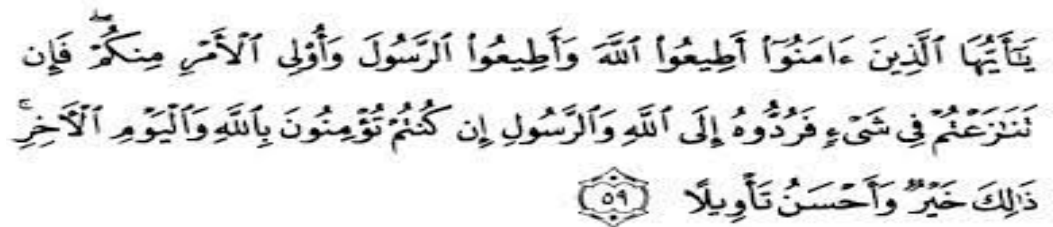 يَـٰٓأَيُّهَا ٱلَّذِينَ ءَامَنُوٓا۟ أَطِيعُوا۟ ٱللَّهَ وَأَطِيعُوا۟ ٱلرَّسُولَ وَأُو۟لِى ٱلْأَمْرِ مِنكُمْ ۖ فَإِن
تَنَـٰزَعْتُمْ فِى شَىْءٍ فَرُدُّوهُ إِلَى ٱللَّهِ وَٱلرَّسُولِ إِن كُنتُمْ تُؤْمِنُونَ بِٱللَّهِ وَٱلْيَوْمِ ٱلْـَٔاخِرِ ۚ
ذَٰلِكَ خَيْرٌ وَأَحْسَنُ تَأْوِيلًا ﴿٥٩﴾